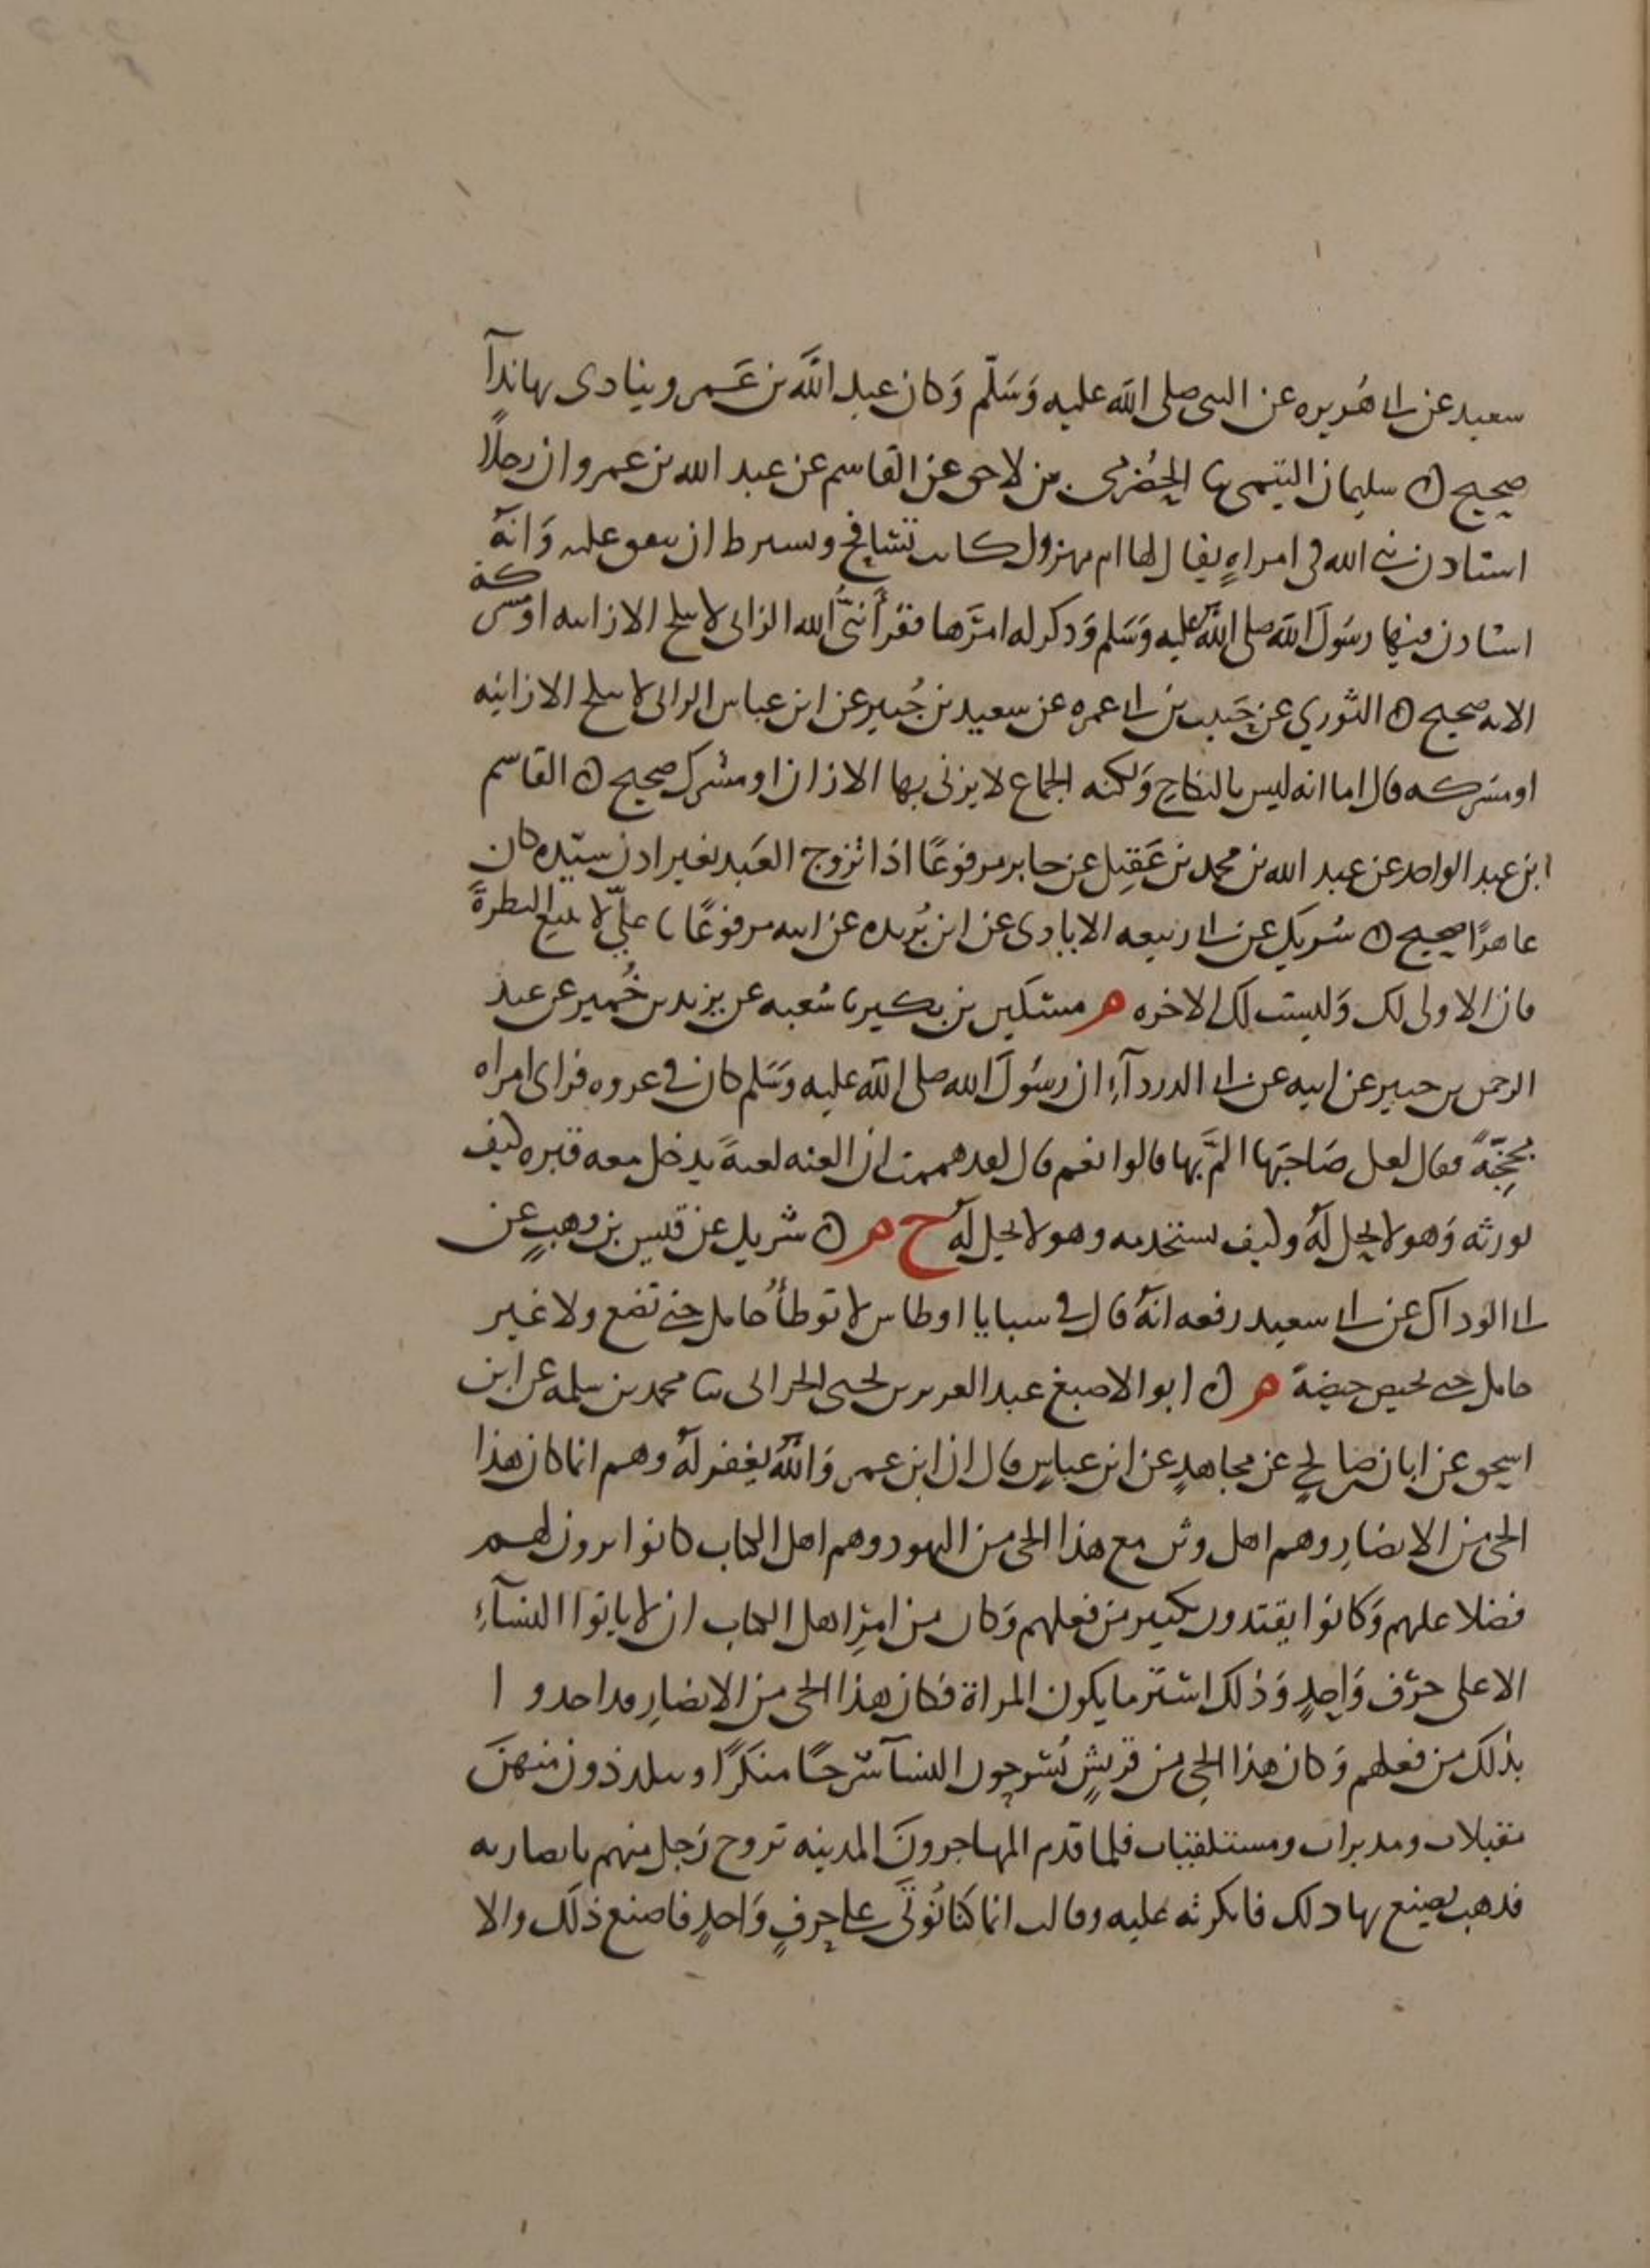 سعيد عن ابي هُريره عن النبى صلى الله عليه وَسَلّم وَكان عبد الله بن عَمرو ينادى بها نداً
صحيح ن سليمان التيمى ثنا الحضرمى بن لاحق عن القاسم عن عبد الله بن عمرو ان رجلاً
استاذن نبى الله فى امراهٍ يقال لها ام مهزول كانت تسَافح وتشترط ان تنفق عليه وَانهُ
استاذن فيها رسُولَ الله صلى الله عليه وَسَلم وَذكر له امرَها فقرأ نبيُّ الله الزانى لا ينكح الا زانيه او مشركة
الايه صحيح ن الثوري عن حَبيب بن ابي عمره عن سعيد بن جُبير عن ابن عباس الزانى لا ينكح الا زانيه
او مشركه قال اما انه ليس بالنكاحِ وَلكنه الجماع لا يزنى بها الا زان او مشرك صحيح ن القاسم
ابن عبد الواحد عن عبد الله بن محمد بن عَقِيل عن جابر مرفوعًا اذا تزوج العَبد بغير اذن سيّده كان
عاهرًا صحيح ن شريك عن ابي ربيعه الايادى عن ابن بُريده عن ابيه مرفوعًا يا عليّ لا تتبع النظرة
فان الاولى لك وَليست لك الاخره م مسكين بن بكير ثنا شعبه عن يزيد بن خُمير عن عبد
الرحمن بن جبير عن ابيه عن ابي الدردآءِ ان رسُولَ الله صلى الله عليه وَسَلم كان فى غزوه فراى امراه
مُجِحّةً فقال لعل صَاحبَها المَّ بها قالوا نعم قال لقد هممت ان العنه لعنةً يدخل معه قبره كيف
يورثه وَهو لا يحل لهُ وكيف يستخدمه وهو لا يحل لهُ ح م ن شريك عن قيس بن وهبٍ عن
ابي الوداك عن ابي سعيد رفعه انهُ قال فى سبايا اوطاس لا توطأُ حامل حتى تضع ولا غير
حامل حتى تحيض حيضة م ن ابو الاصبغ عبد العزيز بن يحيى الحرانى ثنا محمد بن سلمه عن ابن
اسحق عن ابان بن صالحٍ عن مجاهدٍ عن ابن عباسٍ قال ان ابن عمر وَالله يغفر لهُ وهم انما كان هذا
الحى من الانصارِ وهم اهل وثن مع هذا الحى من اليهود وهم اهل الكتاب كانوا يرون لهم
فضلا عليهم وَكانوا يقتدون بكثير من فعلهم وَكان من امرِ اهل الكتاب ان لا ياتوا النسآءِ
الا على حرَف وَاحِدٍ وَذلك استَر ما يكون المراة فكان هذا الحى من الانصارِ قد اخذوا
بذلك من فعلهم وَكان هذا الحى من قريشٍ يَشرحون النسآ شرحًا منكَرًا ويتلذذون منهنَ
مقبلات ومدبرات ومستلقيات فلما قدم المهاجرونَ المدينه تزوج رَجل منهم بانصاريه
فذهب يصنع بها ذلك فانكرته عليه وقالت انما كنا نُؤتَى على حرفٍ وَاحدٍ فاصنع ذلك والا